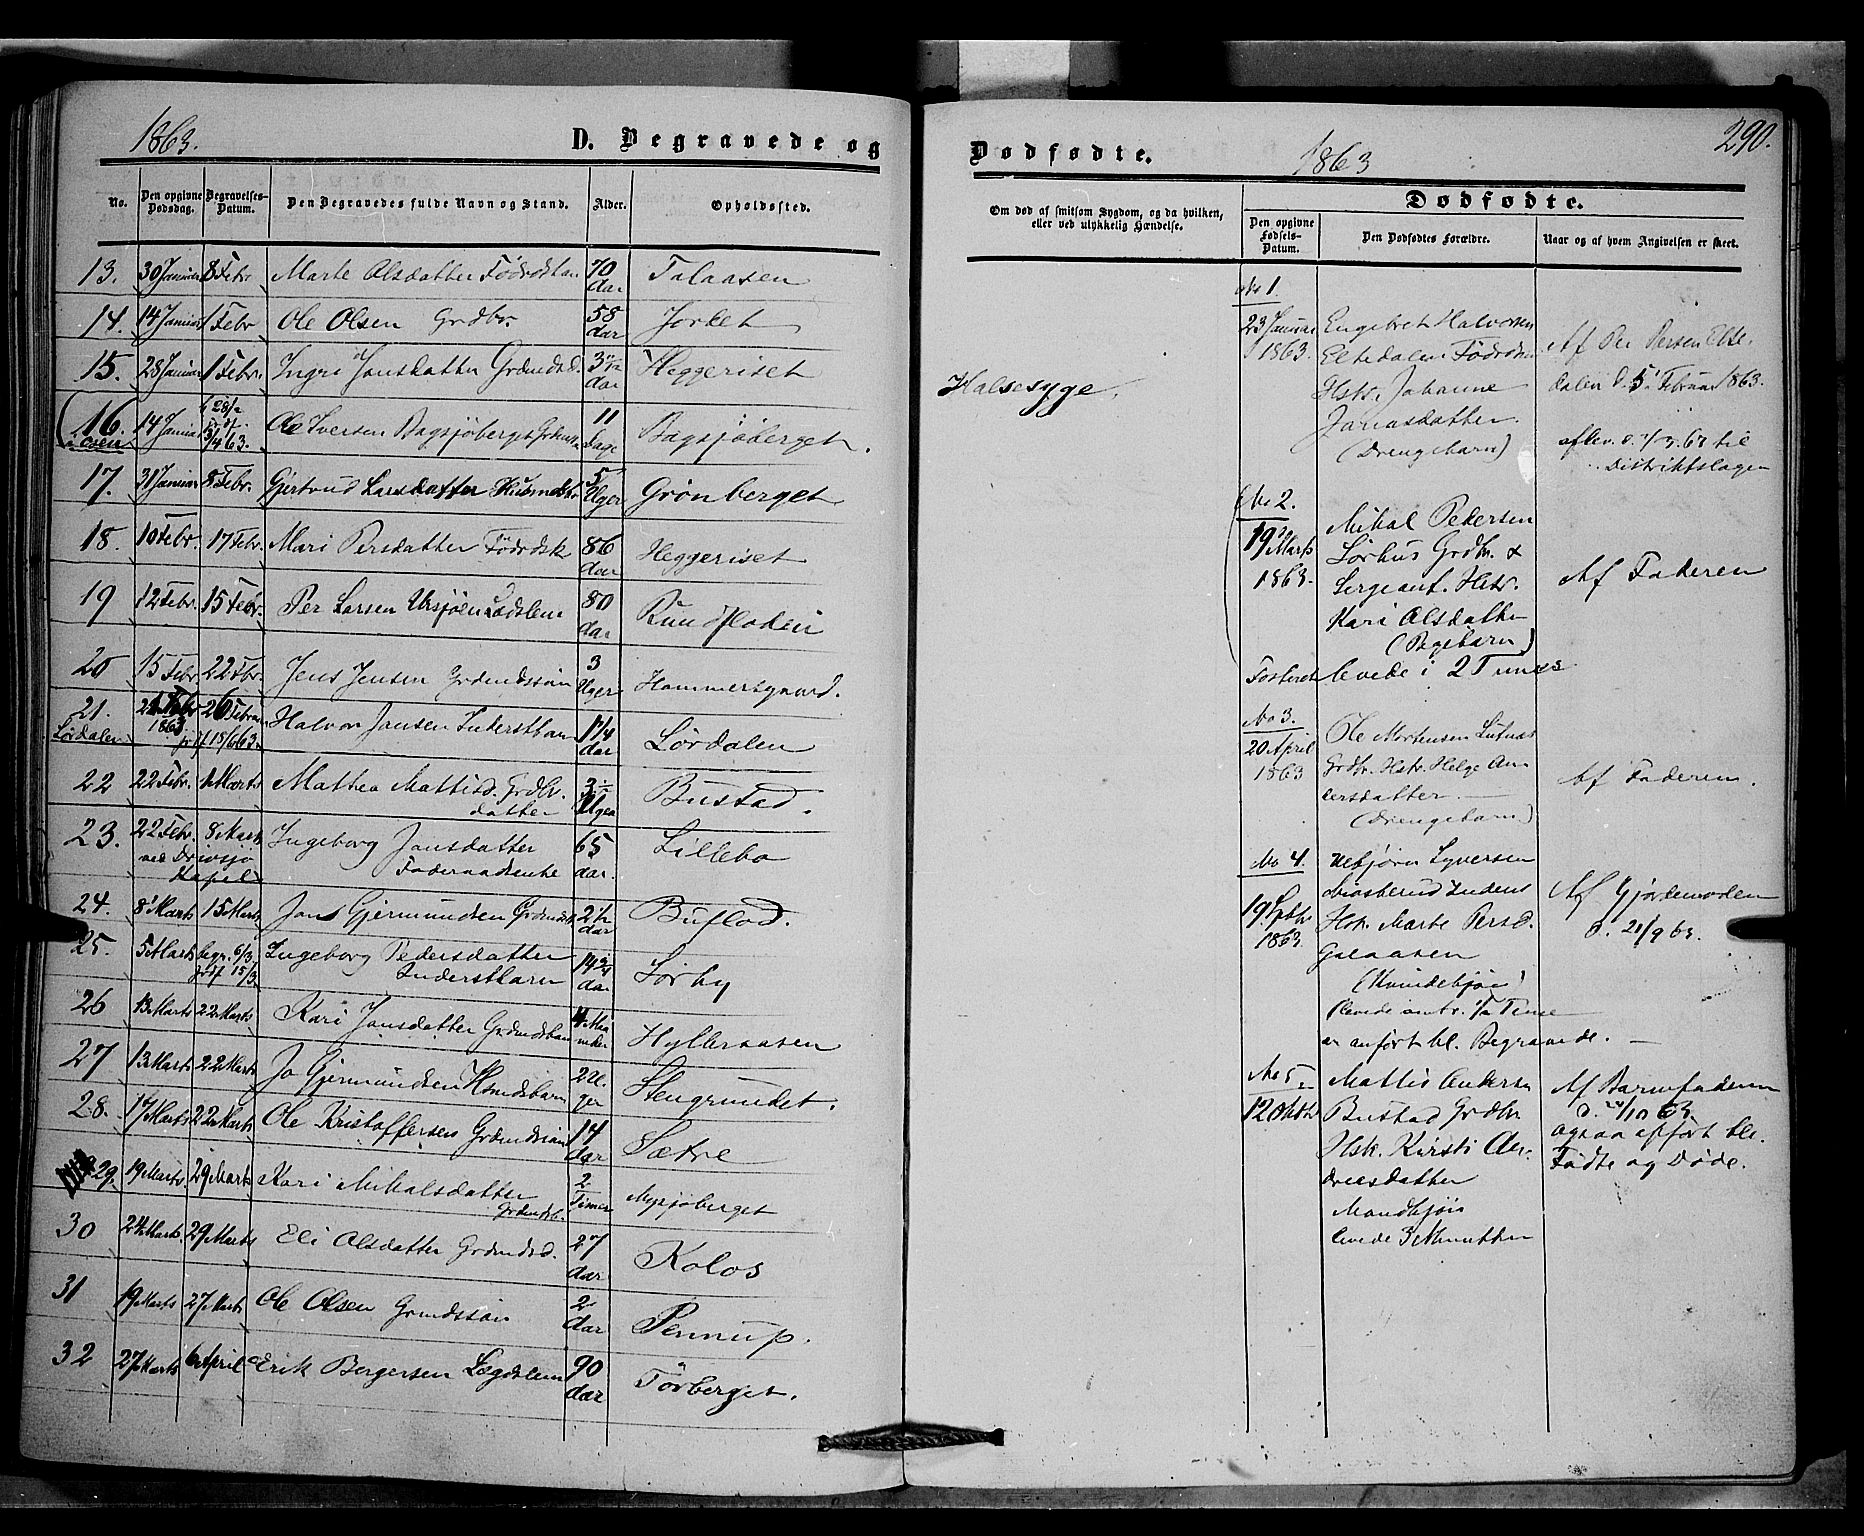 1863.
D. Begravede og
No.
Den opgivne Dødsdag.
Begravelses-Datum.
Den Begravedes fulde Navn og Stand.
Alder.
Opholdssted.
13. 30 Januar 8 Febr. Marte Olsdatter Födrodskan 70 Aar Galaasen
14. 14 Januar 1 Febr Ole Olsen Grdbr. 58 Aar Jordet
15. 28 Januar 1 Febr. Ingri Jonsdatter Grdmdsd. 3 Aar Heggeriset
16. 14 Januar 3/4 63. Ole Iversen Bagsjöberget 11 Dage Bagsjöberget.
17. 31 Januar 8 Febr. Gjertrud Larsdatter Husmdsbr 5 Uger Grönberget
18. 10 Febr. 17 Febr. Mari Persdatter Födrdsk 86 Aar Heggeriset
19 12 Febr. 15 Febr. Per Larsen Ursjöen Lædslem 80 Aar Rundfloden
20 15 Febr. 22 Fbr. Jens Jensen Grdmdssön 3 Uger Hammersgaard.
21. Lørdalen 1863 26 Februar prf 15/6 63. Halvor Jonsen Inderstbarn 1 1/4 Aar Lördalen
22 22 Febr. 1 Marts Mathea Mattisd. Grdbr. datter 3 Uger Bustad.
23. 22 Febr. 8 Marts ved Drevsjø Kapel Ingeborg Jonsdatter Foderaadsenke 65 Aar. Lillebo
24. 8 Marts 15 Marts Jons Gjermundsen 2 1/2 Aar Buflod.
25. 5 Marts begr. 6/3 prf 15/3 Ingeborg Pedersdatter Inderstbarn 14 3/4 Aar Sörby
26 13 Marts 22 Marts Kari Jonsdatter Grdmdsbarn 4 Maaneder Hylleraasen
27 13 Marts 22 Marts Jo Gjermundsen Hsmdsbarn 2 Uger Stengrundet.
28. 17 Marts 22 Marts Ole Kristoffersen Grdmdssön 14 Aar Sætre
29. 19 Marts 29 Marts Kari Mikalsdatter Grdmdsb. 2 Timer Myrsjöberget
30 24 Marts 29 Marts Eli Olsdatter Grdmdsd. 27 Aar Kolos
31 19 Marts 27 Marts Ole Olsen Grmdssön 2 Aar Pennup.
32 27 Marts 6 April Erik Bergersen Lægdslem 90 Aar Törberget.
Dødfødte.
1863
290.
Om død af smitsom Sygdom, og da hvilken,
eller ved ulykkelig Hændelse.
Dødfødte.
Den opgivne Fødsels-Datum.
Den Dødfødtes Forældre.
Naar og af hvem Angivelsen er skeet.
Halsesyge.
No 1.
23 Januar 1863. Engebret Halvorsen
Eltedalen Födrdsm
Hstr. Johanne
Jonasdatter.
(Drengebarn)
Af Per Persen Elte-
dalen d. 5 Februar 1863.
aflev. d. til
Distriktslægen
No 2.
19 Marts 1863. Mikal Pedersen
Sörhus Grdbr. &
Sergeant. Hstr.
Kari Olsdatter
(Pigebarn)
Af Faderen
Fosteret levede i 2 Timer
No 3.
20 April 1863 Ole Mortensen Lutnæs
Grdbr. Hstr. Helge An-
dersdatter.
(Drengebarn)
Af Faderen.
No 4.
19 Spbr 1863. Syversen
Hsk. Marte Persd.
Galaasen
(Kvindekjön)
levede omtr. 1/2 Time
er anfört bl. Begravede.
Af Gjordemoderen
d. 21/9 63.
No 5
12 Oktbr Mattis Andersen
Bustad Grdbr
Hsk. Kirsti An-
dreasdatter
Mandkjön
levede 3 Minutter
Af Barnefaderen
d. /10 63.
ogsaa opfört bl.
Födte og Döde.